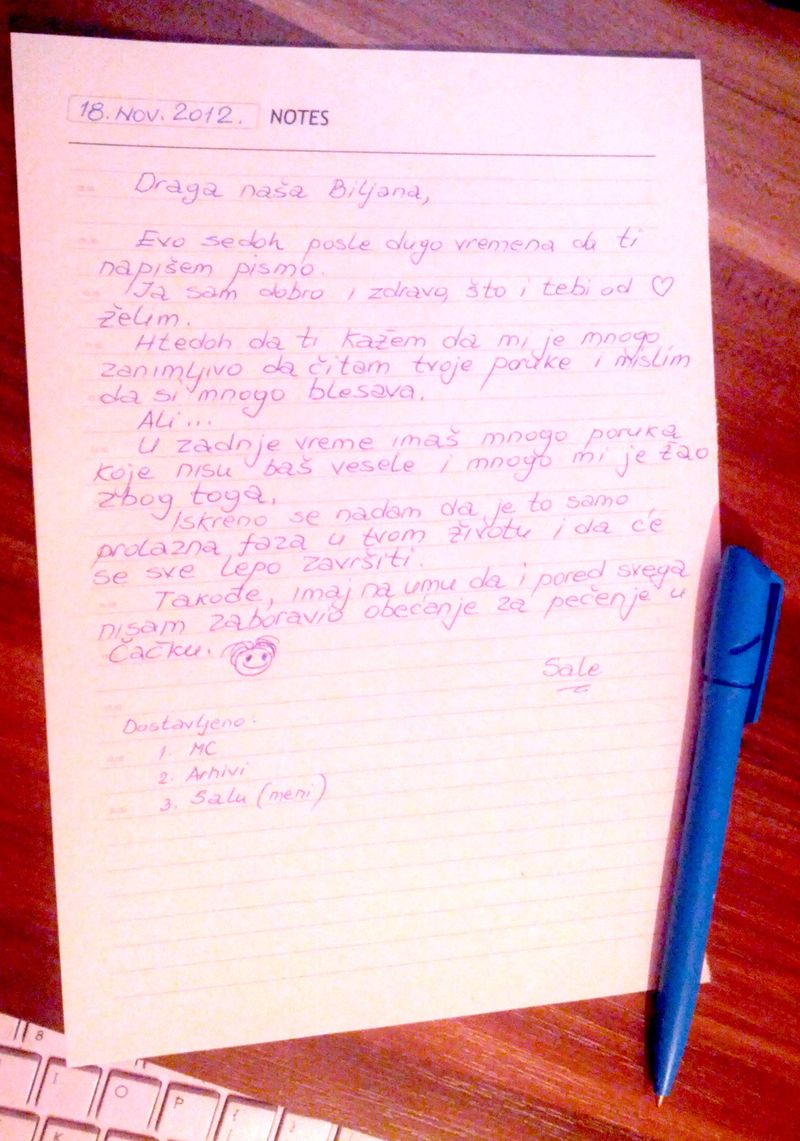 18. Nov. 2012. NOTES
Draga naša Biljana,
Evo sedoh posle dugo vremena da ti
napišem pismo.
Ja sam dobro i zdravo, što i tebi od ♡
želim.
Htedoh da ti kažem da mi je mnogo
zanimljivo da čitam tvoje poruke i mislim
da si mnogo blesava.
Ali...
U zadnje vreme imaš mnogo poruka
koje nisu baš vesele i mnogo mi je žao
zbog toga.
Iskreno se nadam da je to samo
prolazna faza u tvom životu i da će
se sve lepo završiti.
Takođe, imaj na umu da i pored svega
nisam zaboravio obećanje za pečenje u
Čačku.
Sale
Dostavljeno:
1. MC
2. Arhivi
3. Salu (meni)
8
I
O
P
K